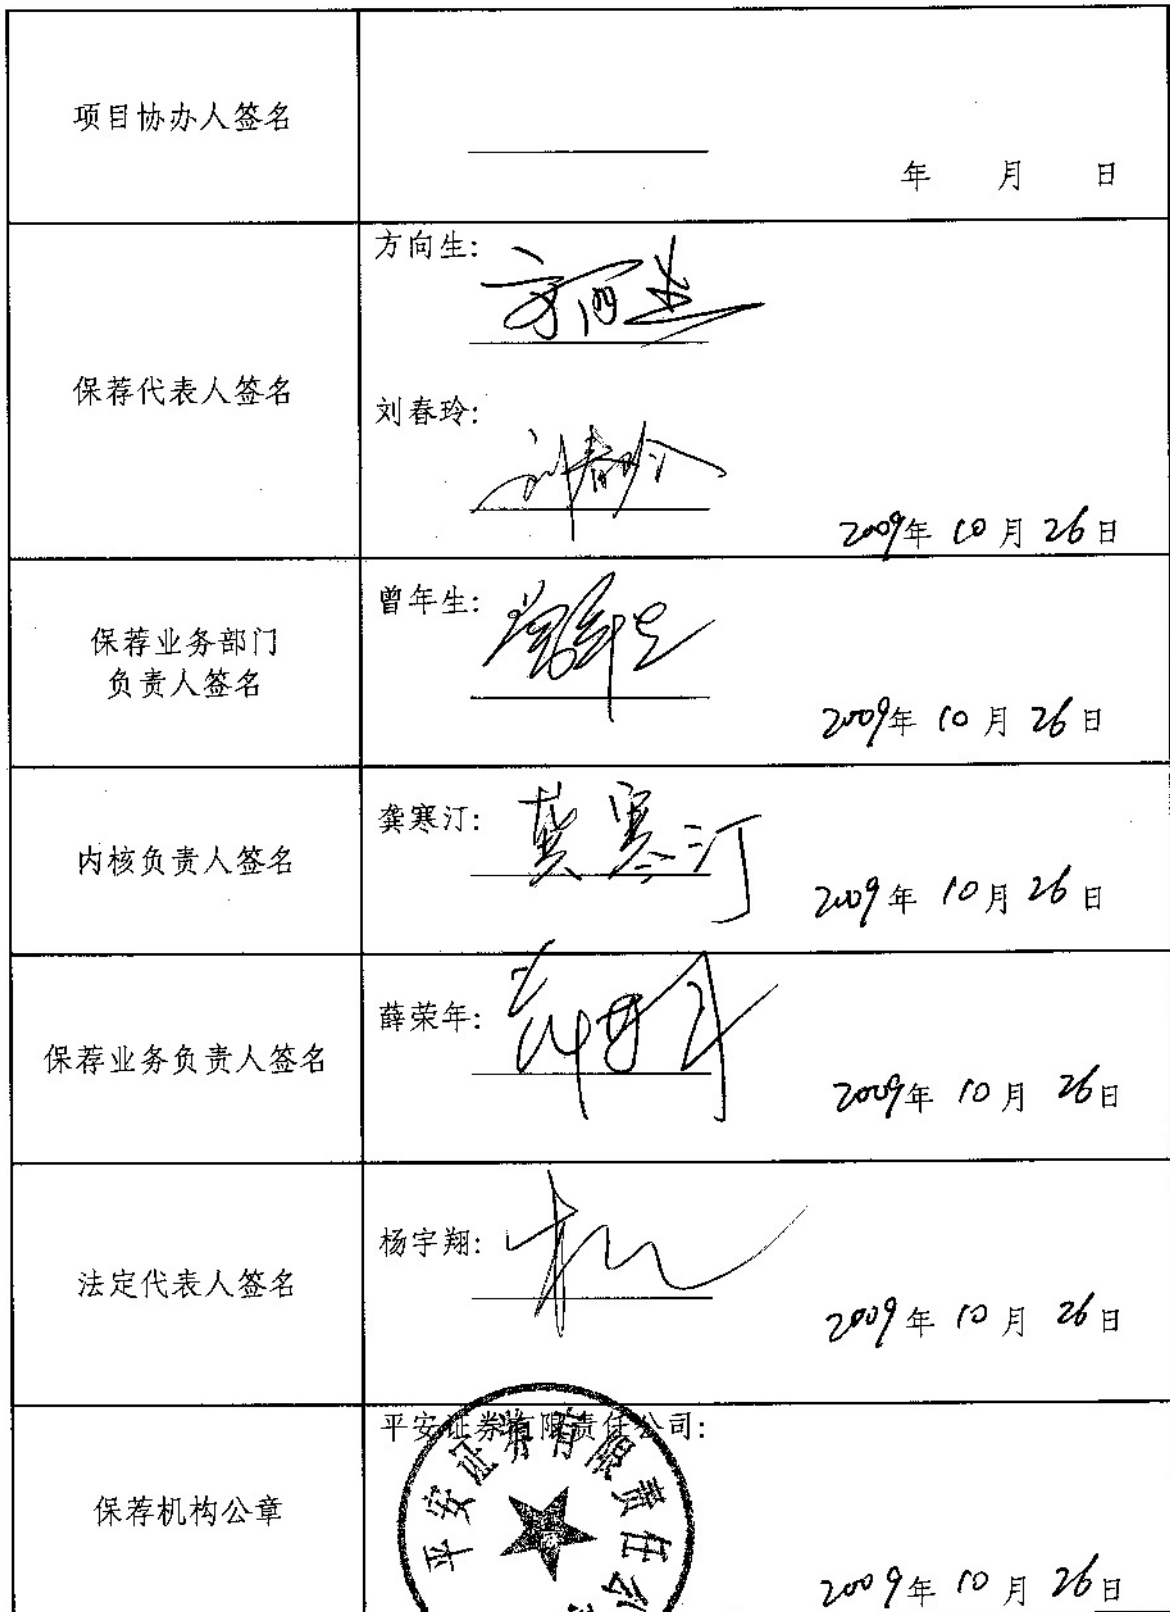 项目协办人签名
年 月 日
保荐代表人签名
方向生:
方向生
刘春玲:
刘春玲
2009年 10月 26日
保荐业务部门
负责人签名
曾年生:
曾年生
2009年 10月 26日
内核负责人签名
龚寒汀:
龚寒汀
2009年 10月 26日
保荐业务负责人签名
薛荣年:
薛荣年
2009年 10月 26日
法定代表人签名
杨宇翔:
2009年 10月 26日
保荐机构公章
平安证券有限责任公司:
平安证券有限责任公
2009年 10月 26日